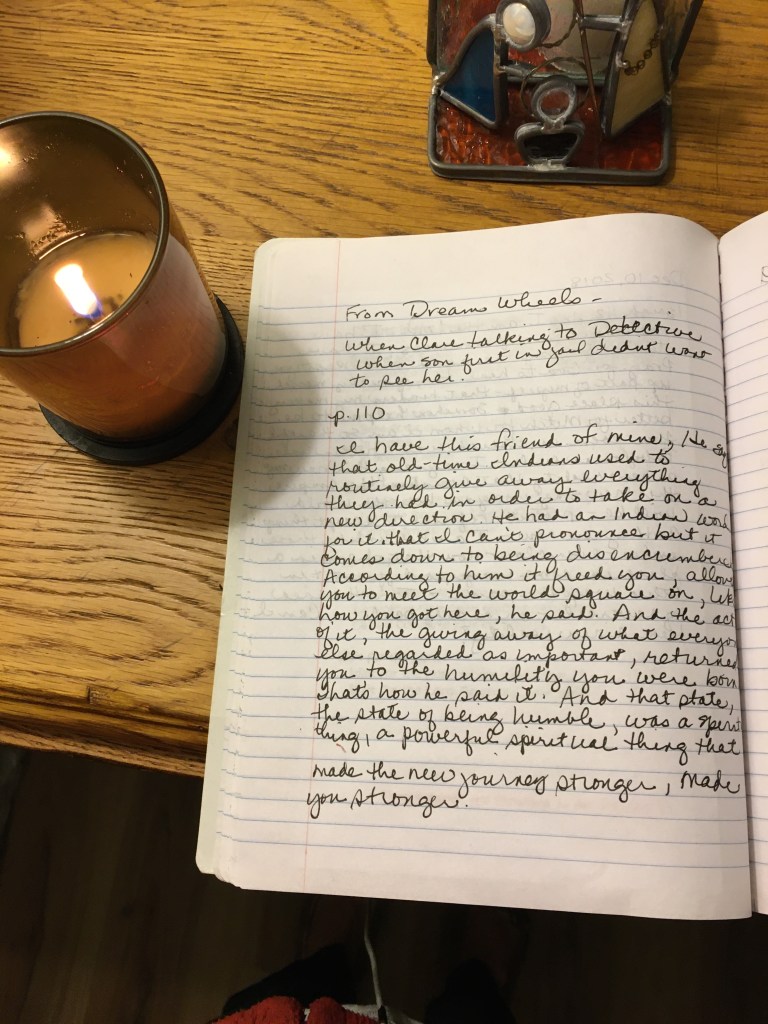 From Dream Wheels -
When Clare talking to Detective
when son first in jail didnt want
to see her.
p.110
I have this friend of mine, He say
that old-time Indians used to
routinely give away everything
they had in order to take on a
new direction. He had an Indian word
for it that I can't pronounce but it
comes down to being disencumbere
According to him it freed you, allow
you to meet the world square on, like
how you got here, he said. And the act
of it, the giving away of what everyo
else regarded as important, returned
you to the humility you were born
thats how he said it. And that state,
the state of being humble, was a spirit
thing, a powerful spiritual thing that
made the new journey stronger, made
you stronger.